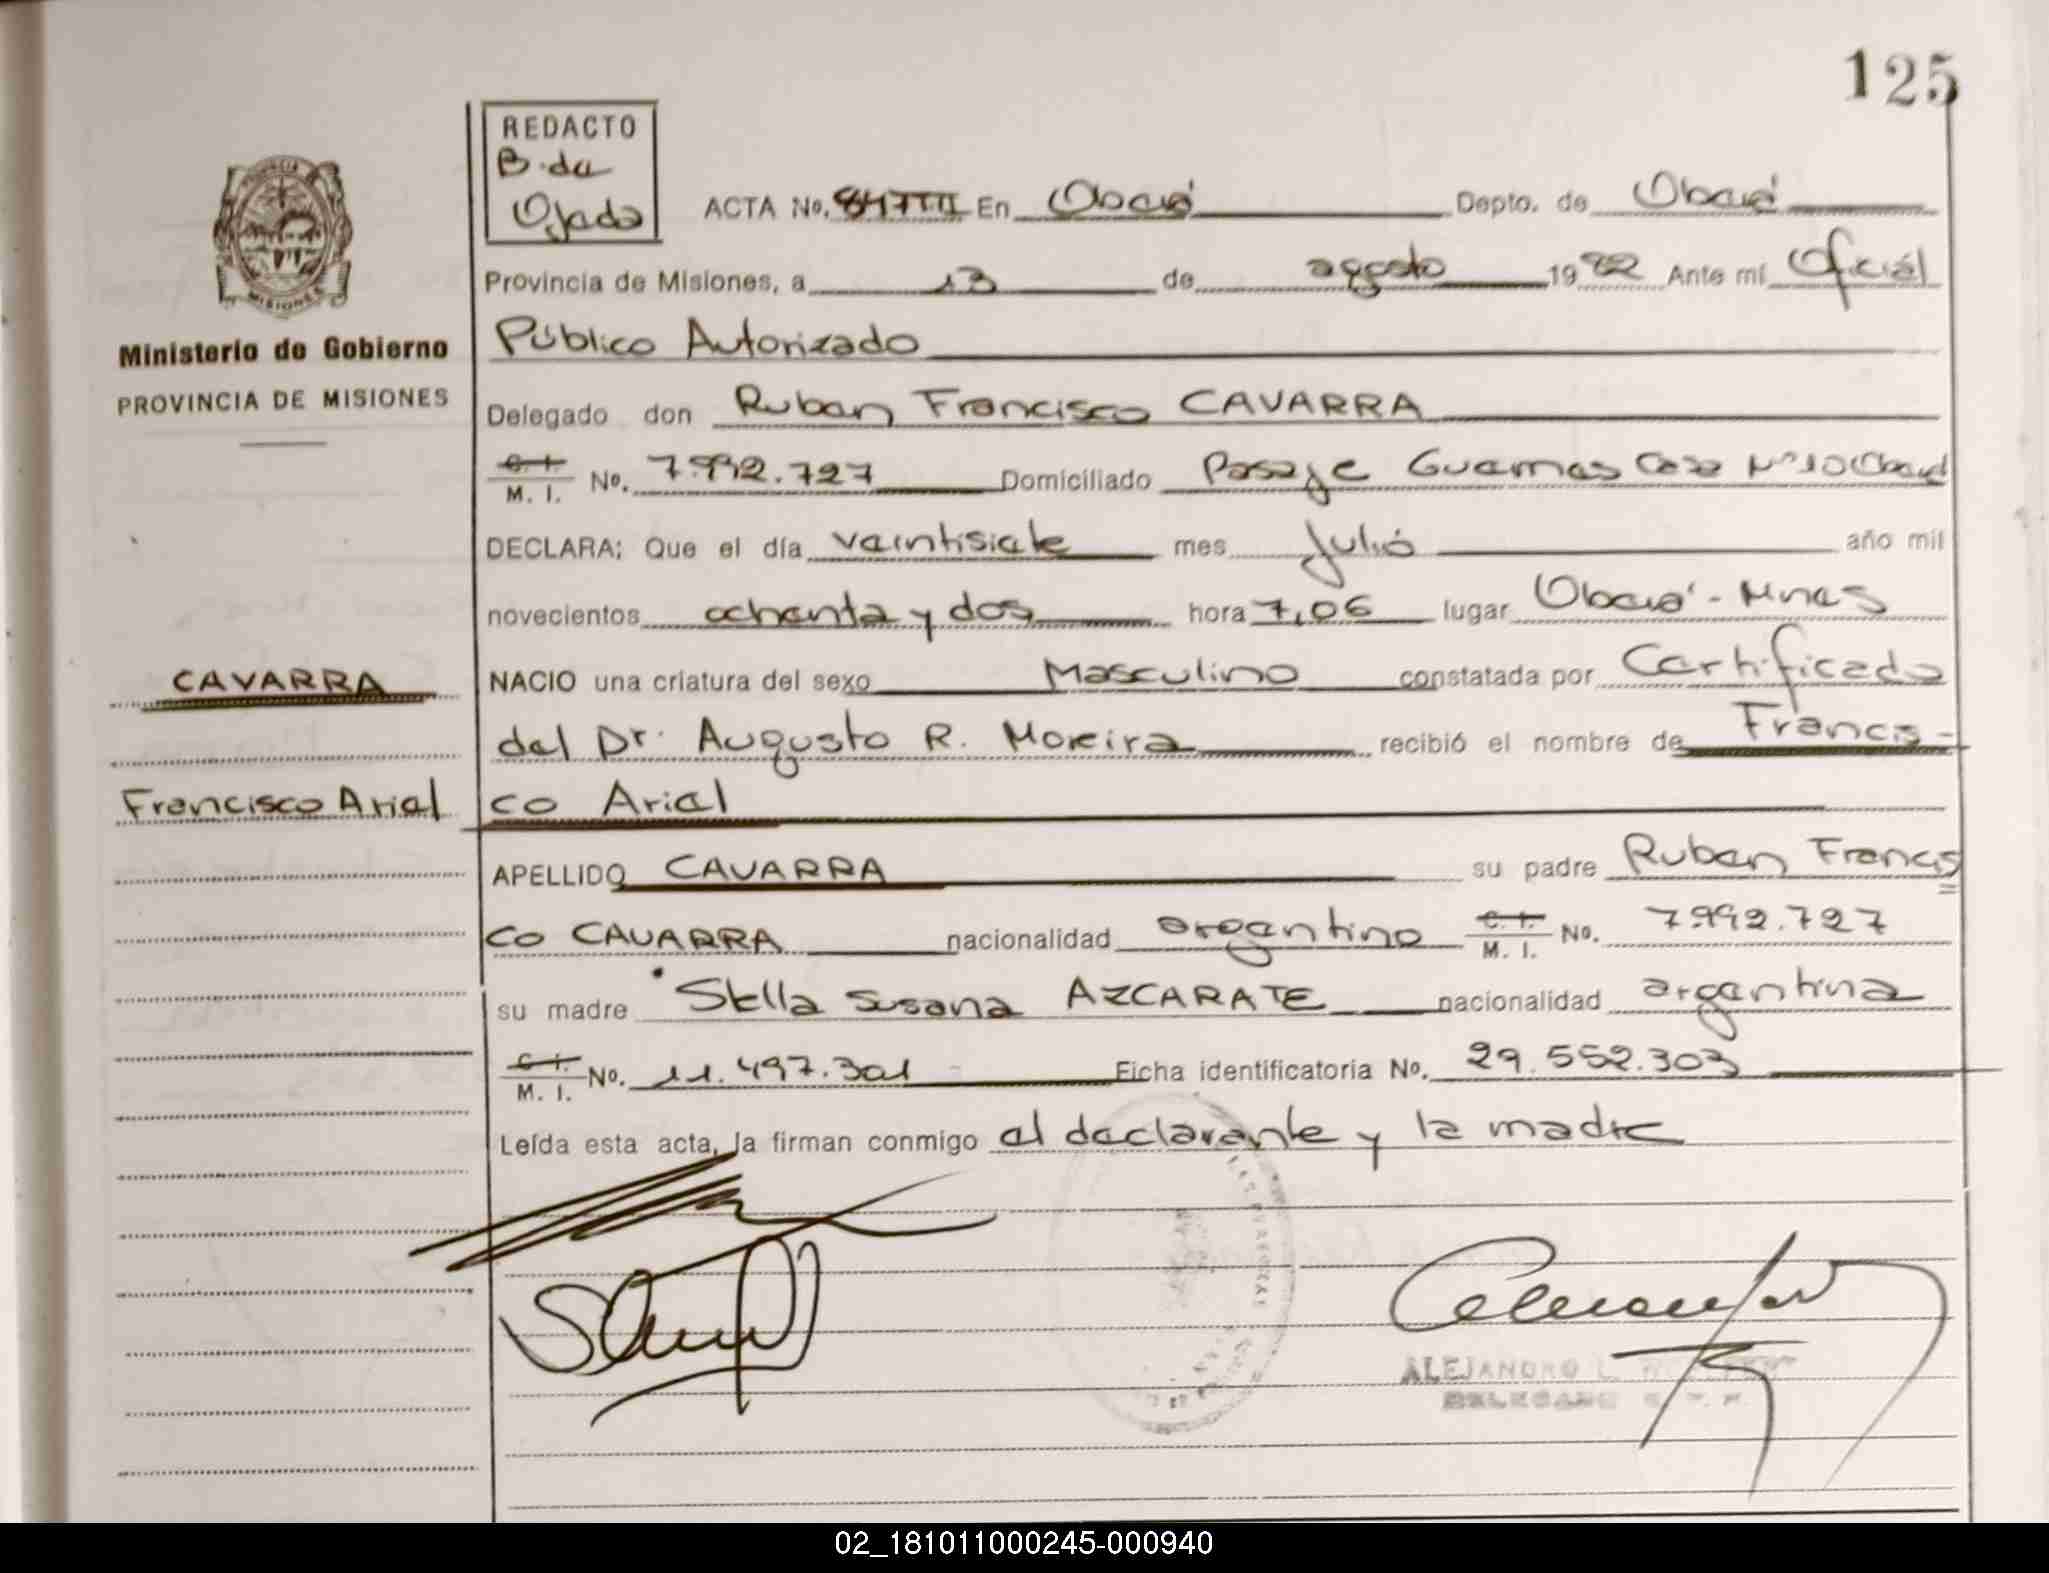 125
REDACTO
B. de
Ojeda
PROVINCIA
MISIONES
ACTA No. 847TIII En Oberá Depto. de Oberá
Provincia de Misiones, a 13 de agosto 1982 Ante mí Oficial
Ministerio de Gobierno
Público Autorizado
PROVINCIA DE MISIONES
Delegado don Ruben Francisco CAVARRA
C. I. M. I. No. 7.992.727 Domiciliado Pasaje Guemes Casa Nº 10 Oberá
DECLARA: Que el día veintisiete mes Julio año mil
novecientos ochenta y dos hora 7,06 lugar Oberá - Mnes
CAVARRA
NACIO una criatura del sexo Masculino constatada por Certificado
del Dr. Augusto R. Moreira recibió el nombre de Francis-
Francisco Ariel
co Ariel
APELLIDO CAVARRA su padre Ruben Francis=
co CAVARRA nacionalidad argentino C. I. M. I. No. 7.992.727
su madre Stella Susana AZCARATE nacionalidad argentina
C. I. M. I. No. 11.497.301 Ficha identificatoria No. 29.552.303
Leída esta acta, la firman conmigo el declarante y la madre
ALEJANDRO L.
DELEGADO
02_181011000245-000940